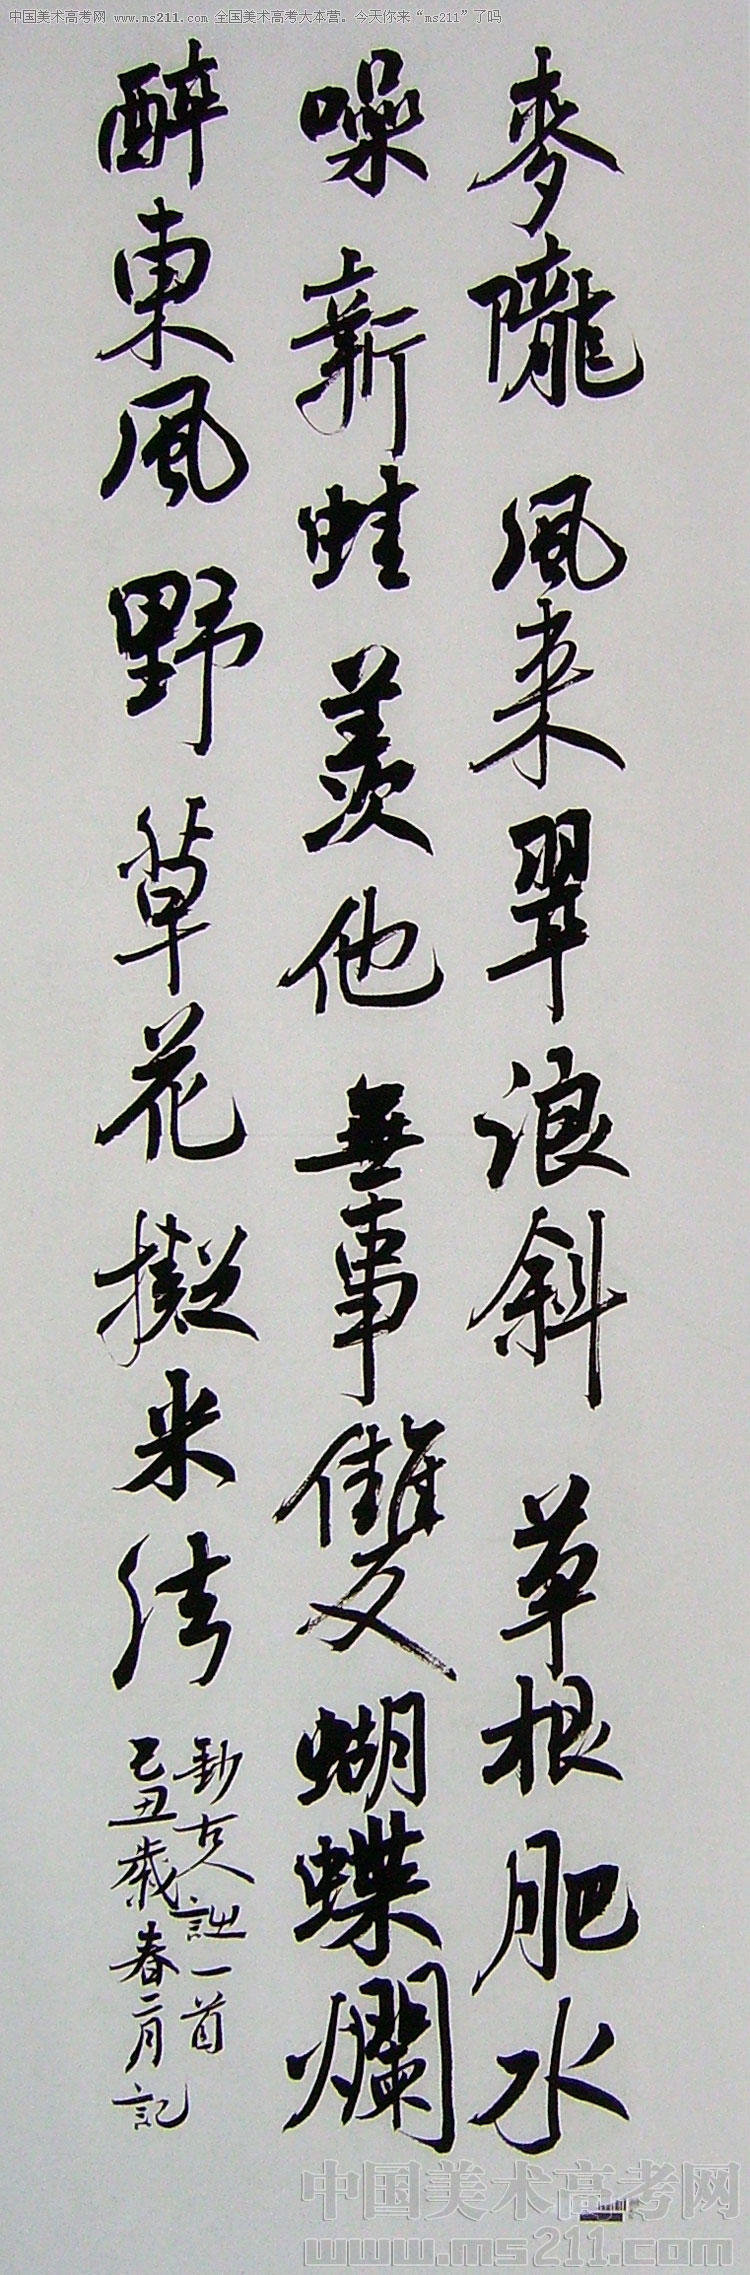 中国美术高考网 www.ms211.com 全国美术高考大本营。今天你来“ms211”了吗
麥隴風來翠浪斜草根肥水
噪新蛙羨他無事雙蝴蝶爛
醉東風野草花擬米法
古人詩一首
己丑歲春二月記
中国美术高考网
www.ms211.com